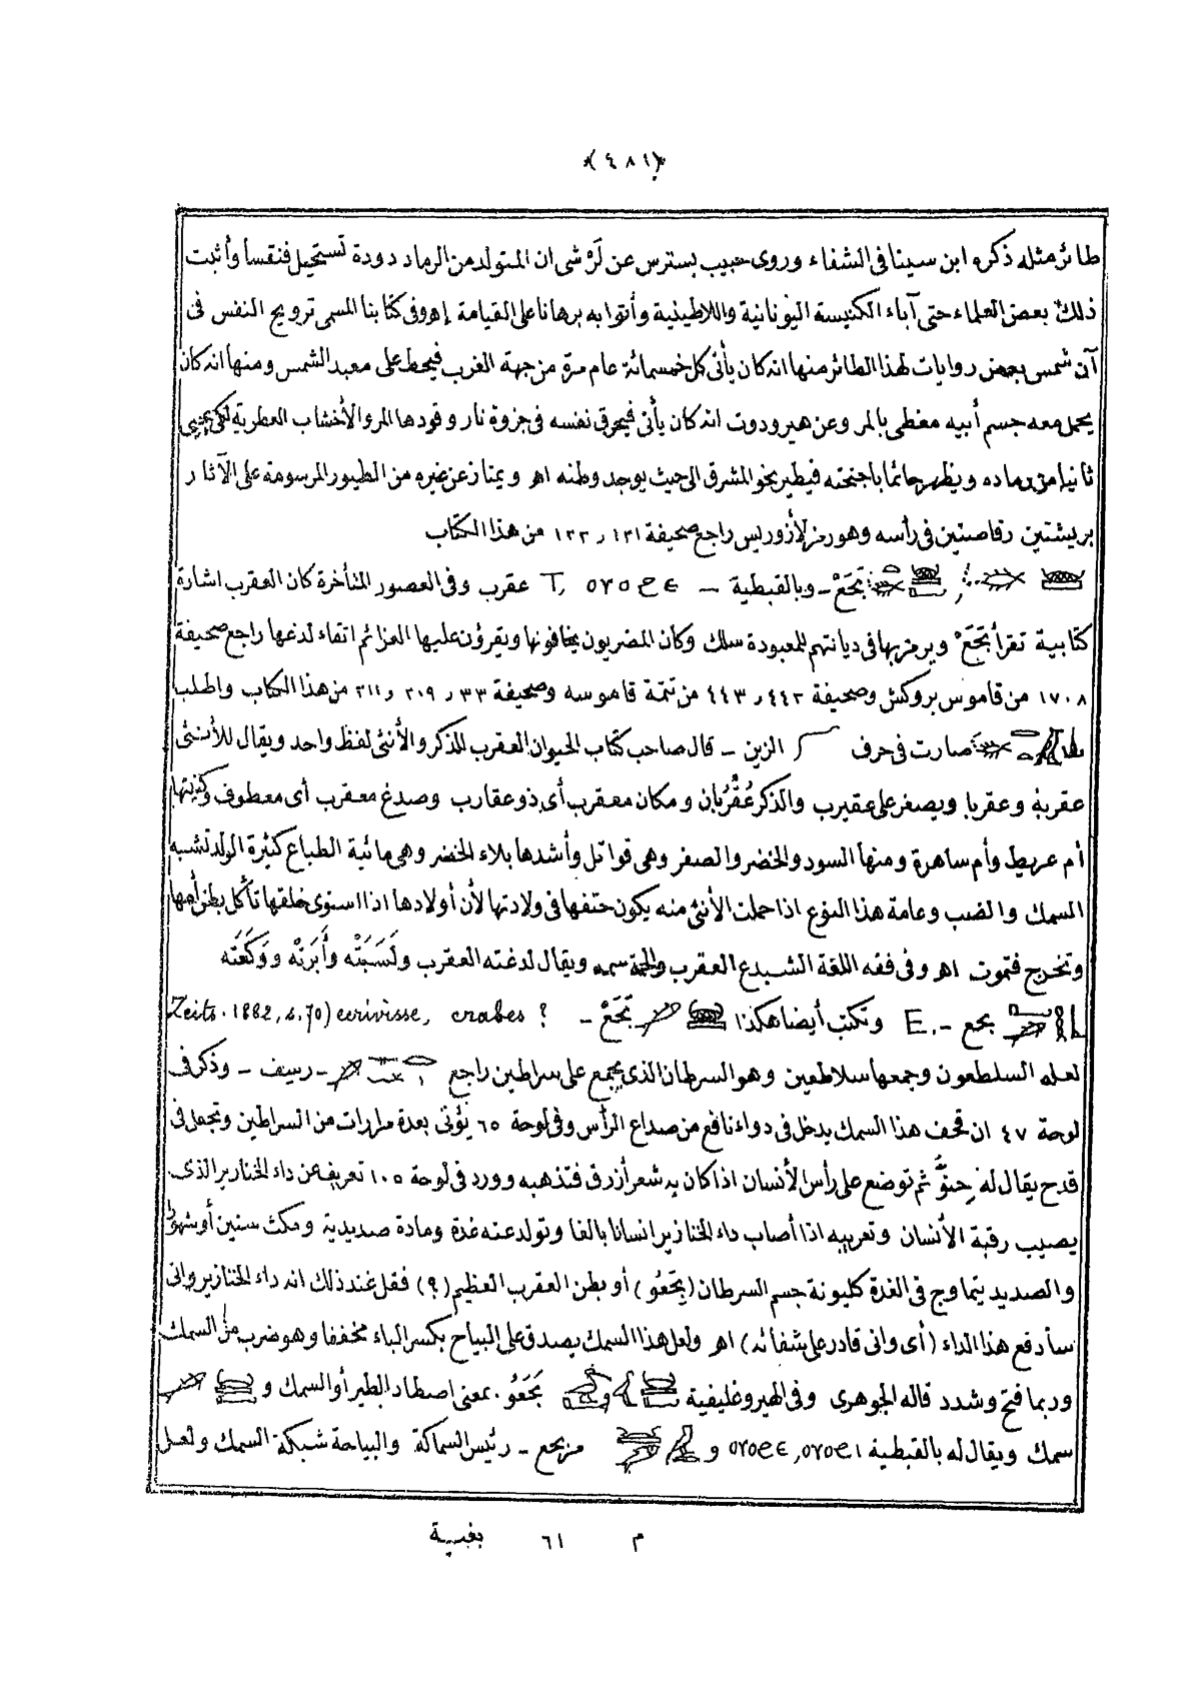 ﴿٤٨١﴾
طائر مثله ذكره ابن سينا فى الشفاء وروى حبيب بسترس عن لَرْشى ان المتولد من الرماد دودة تستحيل فنقسا وأثبت
ذلك بعض العلماء حتى آباء الكنيسة اليونانية واللاطينية وأتوا به برهانا على القيامة إهـ وفى كتابنا المسمى ترويح النفس فى
آن شمس بعض روايات لهذا الطائر منها انه كان يأتى كل خمسمائة عام مرة من جهة الغرب فيحط على معبد الشمس ومنها انه كان
يحمل معه جسم أبيه مغطى بالمر وعن هيرودوت انه كان يأتى فيحرق نفسه فى جزوة نار وقودها المر والأخشاب العطرية لكى يحيى
ثانيا من رماده ويظهر حائما باجنحته فيطير نحو المشرق الى حيث يوجد وطنه اهـ ويمتاز عن غيره من الطيور المرسومة على الآثار
بريشتين رقاصتين فى رأسه وهو رمز لأزوريس راجع صحيفة ١٣١ ر ١٣٣ من هذا الكتاب
بَحَعْ ـ وبالقبطية ـ T, عقرب وفى العصور المتأخرة كان العقرب اشارة
كتابية تقرأ بَحَعْ ويرمز بها فى ديانتهم للمعبودة سلك وكان المصريون يخافونها ويقرؤن عليها العزائم اتقاء لدغها راجع صحيفة
١٧٠٨ من قاموس بروكش وصحيفة ٤٤٢ ر ٤٤٣ من تتمة قاموسه وصحيفة ٣٣ ر ٢٠٩ ر ٢١١ من هذا الكتاب واطلب
صارت فى حرف الزين ـ قال صاحب كتاب الحيوان العقرب للذكر والأنثى لفظ واحد ويقال للأنثى
عقربة وعقربا ويصغر على عقيرب والذكر عُقْرُبان ومكان معقرب أى ذو عقارب وصدغ معقرب أى معطوف وكنيتها
أم عريط وأم ساهرة ومنها السود والخضر والصفر وهى قواتل وأشدها بلاء الخضر وهى مائية الطباع كثيرة الولد تشبه
السمك والضب وعامة هذا النوع اذا حملت الأنثى منه يكون حتفها فى ولادتها لأن أولادها اذا استوى خلقها تأكل بطن أمها
وتخرج فتموت اهـ وفى فقه اللغة الشبدع العقرب والحمة سمه ويقال لدغته العقرب ولَسَبَتْه وأَبَرَتْه ووَكَعَتْه
بحع ـ E. وتكتب أيضا هكذا بَحَعْ ـ Zeits. 1882, s. 70) ecrivisse, crabes ?
لعله السلطعون وجمعها سلاطعين وهو السرطان الذى يجمع على سراطين راجع ـ رسيف ـ وذكر فى
لوحة ٤٧ ان قحف هذا السمك يدخل فى دواء نافع من صداع الرأس وفى لوحة ٦٥ يؤتى بعدة مرارات من السراطين وتجعل فى
قدح يقال له حنوّ ثم توضع على رأس الأنسان اذا كان به شعر أزرق فتذهبه وورد فى لوحة ١٠٥ تعريف عن داء الخنازير الذى
يصيب رقبة الأنسان وتعريبه اذا أصاب داء الخنازير انسانا بالغا وتولد عنه غدة ومادة صديدية ومكث سنين أو شهورا
والصديد يتماوج فى الغدة كليونة جسم السرطان (بَحَعُو) أو بطن العقرب العظيم (؟) فقل عند ذلك انه داء الخنازير وانى
سأدفع هذا الداء (أى وانى قادر على شفائه) اهـ ولعل هذا السمك يصدق على البياح بكسر الباء مخففا وهو ضرب من السمك
وربما فتح وشدد قاله الجوهرى وفى الهيروغليفية بَحَعُو. بمعنى اصطاد الطير أو السمك و
سمك ويقال له بالقبطية و مر بحع ـ رئيس السماكة والبياحة شبكة السمك ولعل
م ٦١ بغية